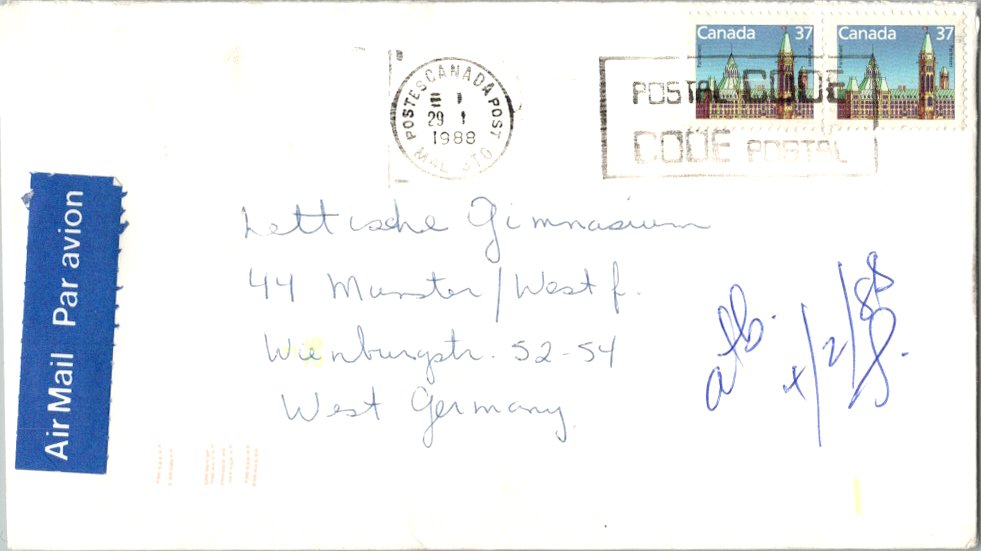 Canada 37
Canada 37
POSTES CANADA POST
29 1
1988
POSTAL CODE
CODE POSTAL
Air Mail Par avion
Lettische Gimnasium
44 Munster/Westf.
Wienburgstr. 52-54
West Germany
atb.